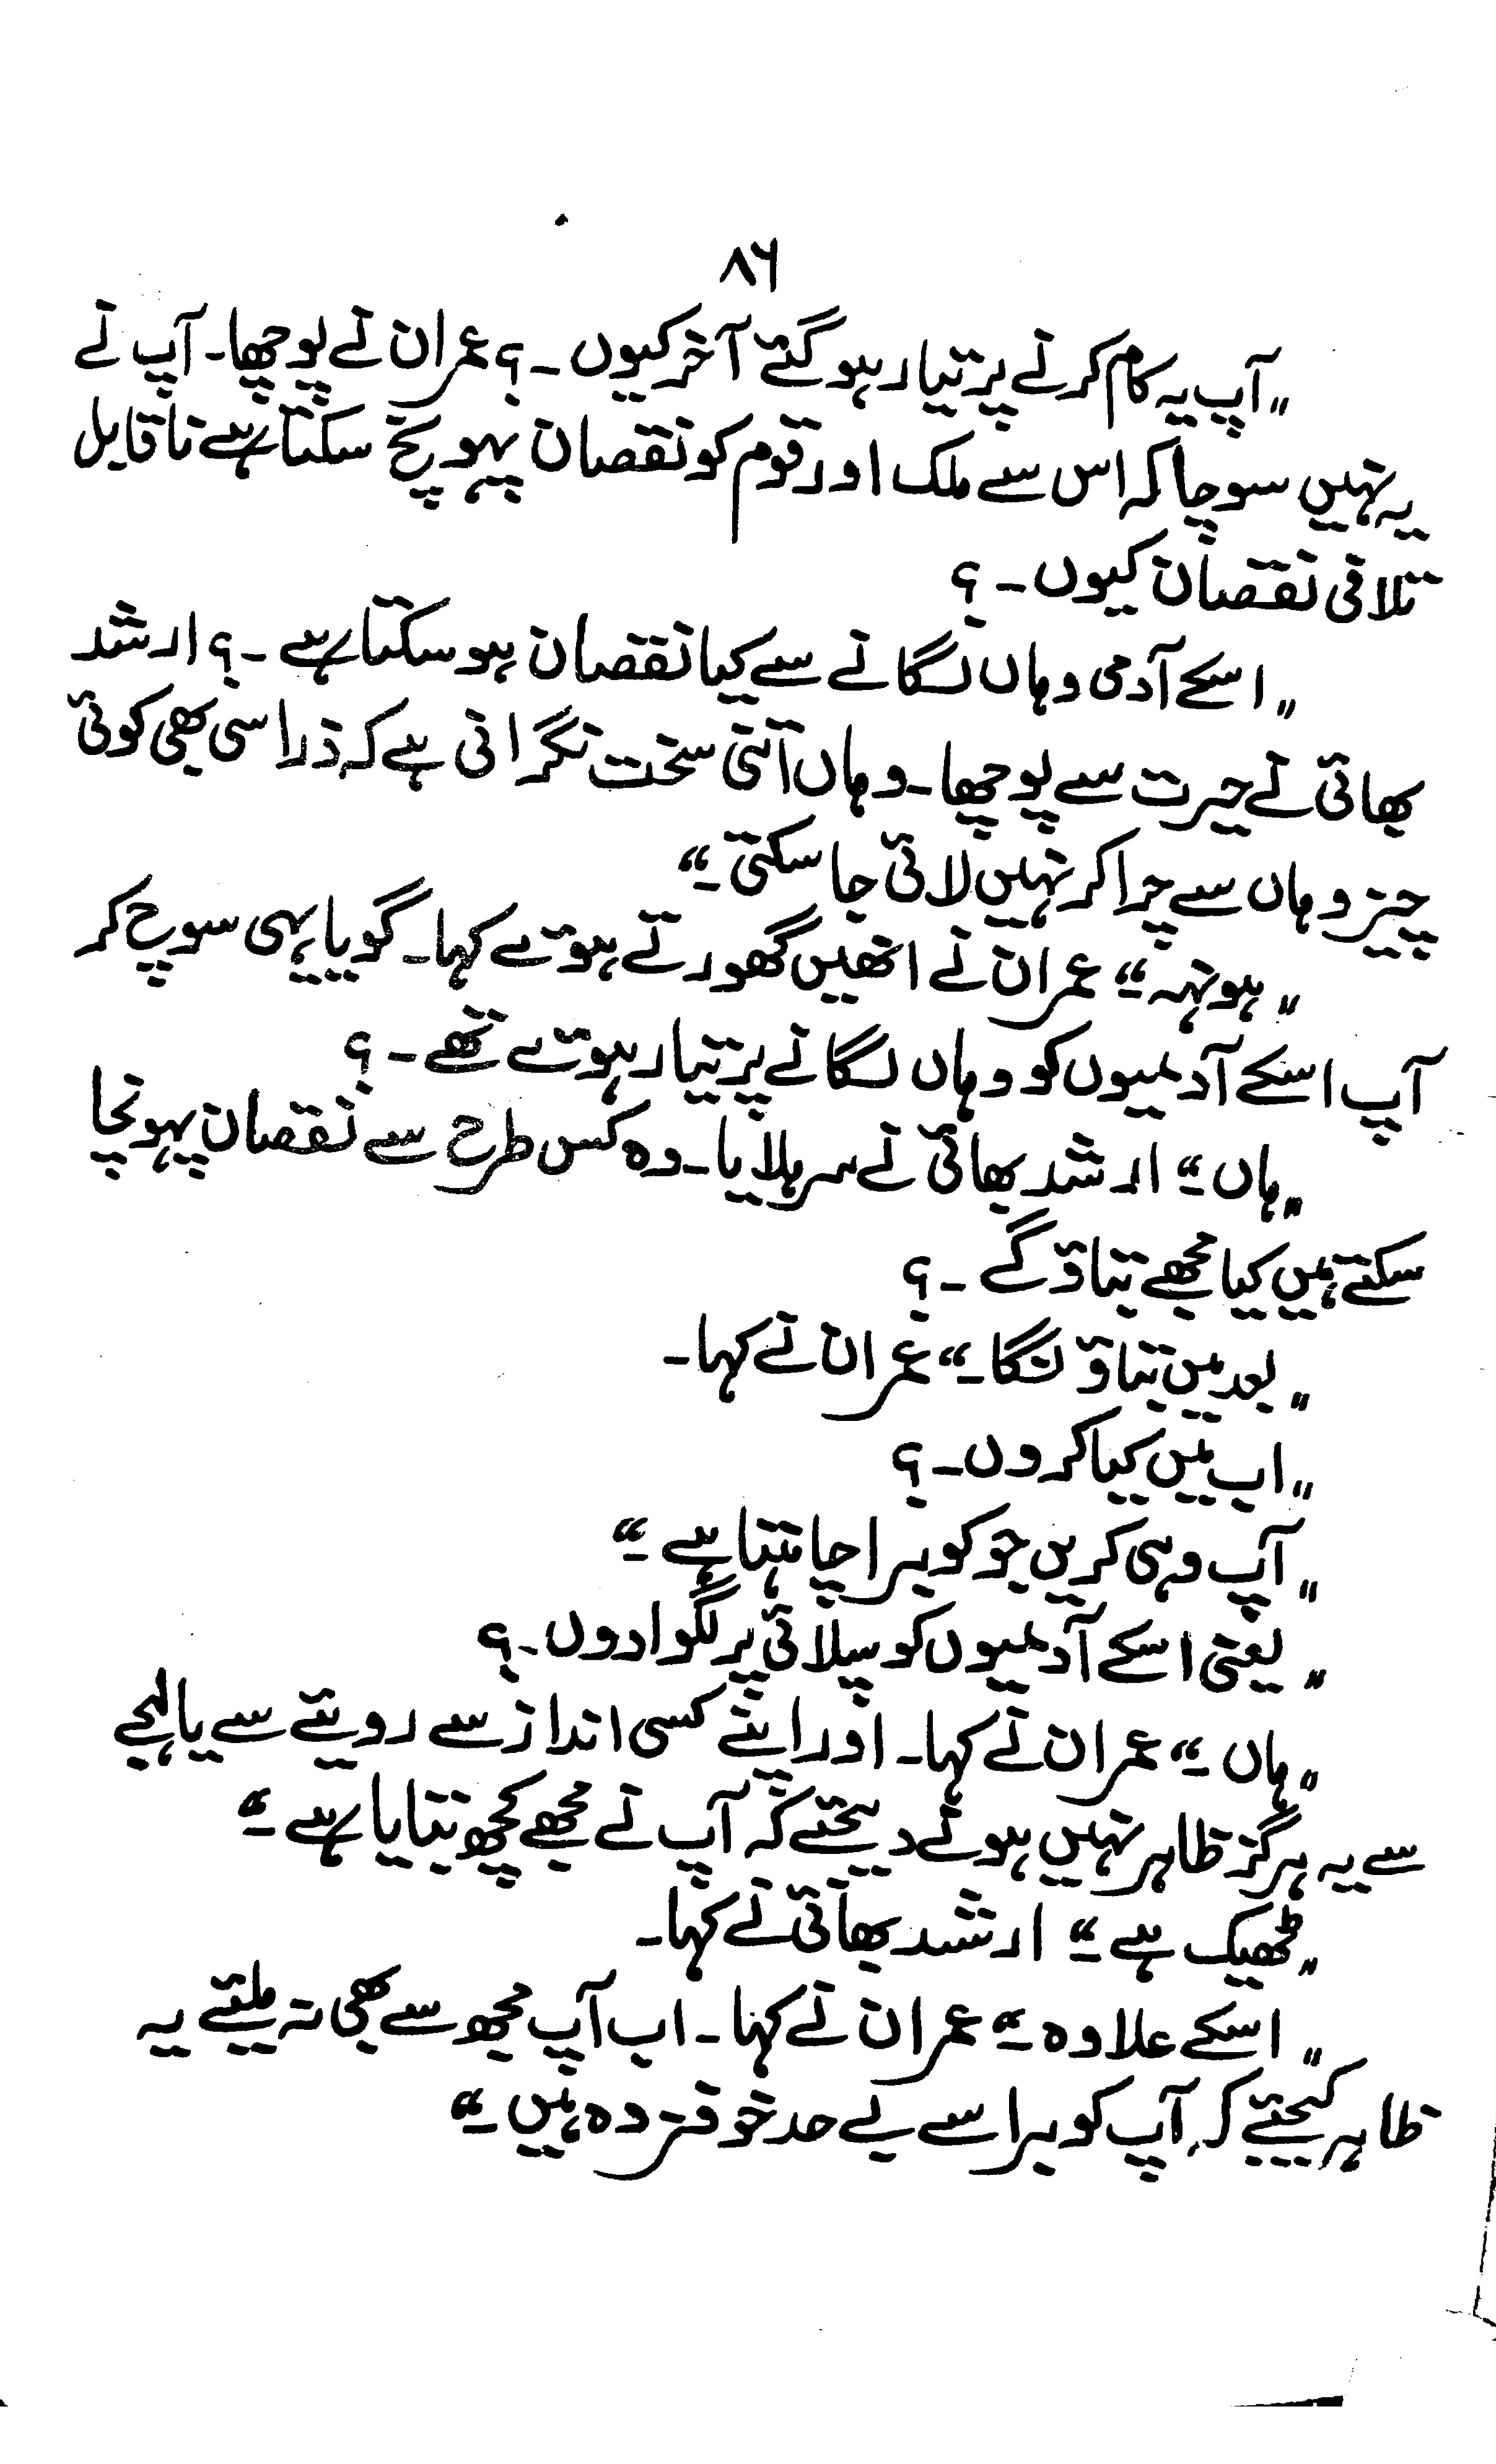 ۸۶
"آپ یہ کام کرنے پر تیار ہو گئے آخر کیوں ۔؟ عمران نے پوچھا۔ آپ نے
یہ نہیں سوچا کہ اس سے ملک اور قوم کو نقصان پہونچ سکتا ہے ناقابل
تلافی نقصان کیوں ۔؟
"اسکے آدمی وہاں لگانے سے کیا نقصان ہو سکتا ہے ۔؟ ارشد
بھائی نے حیرت سے پوچھا۔ وہاں اتنی سخت نگرانی ہے کہ ذرا سی بھی کوئی
چیز وہاں سے چرا کر نہیں لائی جا سکتی ۔"
"ہونہہ ۔" عمران نے انھیں گھورتے ہوئے کہا۔ گویا یہی سوچ کر
آپ اسکے آدمیوں کو وہاں لگانے پر تیار ہوئے تھے ۔؟
"ہاں ۔" ارشد بھائی نے سر ہلایا۔ وہ کس طرح سے نقصان پہونچا
سکتے ہیں کیا مجھے بتاؤ گے ۔؟
"بعد میں بتاؤ نگا ۔" عمران نے کہا۔
"اب میں کیا کروں ۔؟
"آپ وہی کریں جو کوبرا چاہتا ہے ۔"
"یعنی اسکے آدمیوں کو سپلائی پر لگوا دوں ۔؟
"ہاں ۔" عمران نے کہا۔ اور اپنے کسی انداز سے رویئے سے یا لہجے
سے یہ ہرگز ظاہر نہیں ہونے دیجئے کہ آپ نے مجھے کچھ بتایا ہے ۔"
"ٹھیک ہے ۔" ارشد بھائی نے کہا۔
"اسکے علاوہ ۔" عمران نے کہا۔ اب آپ مجھ سے بھی نہ ملیئے یہ
ظاہر کیجئے کہ آپ کوبرا سے بے حد خوفزدہ ہیں ۔"